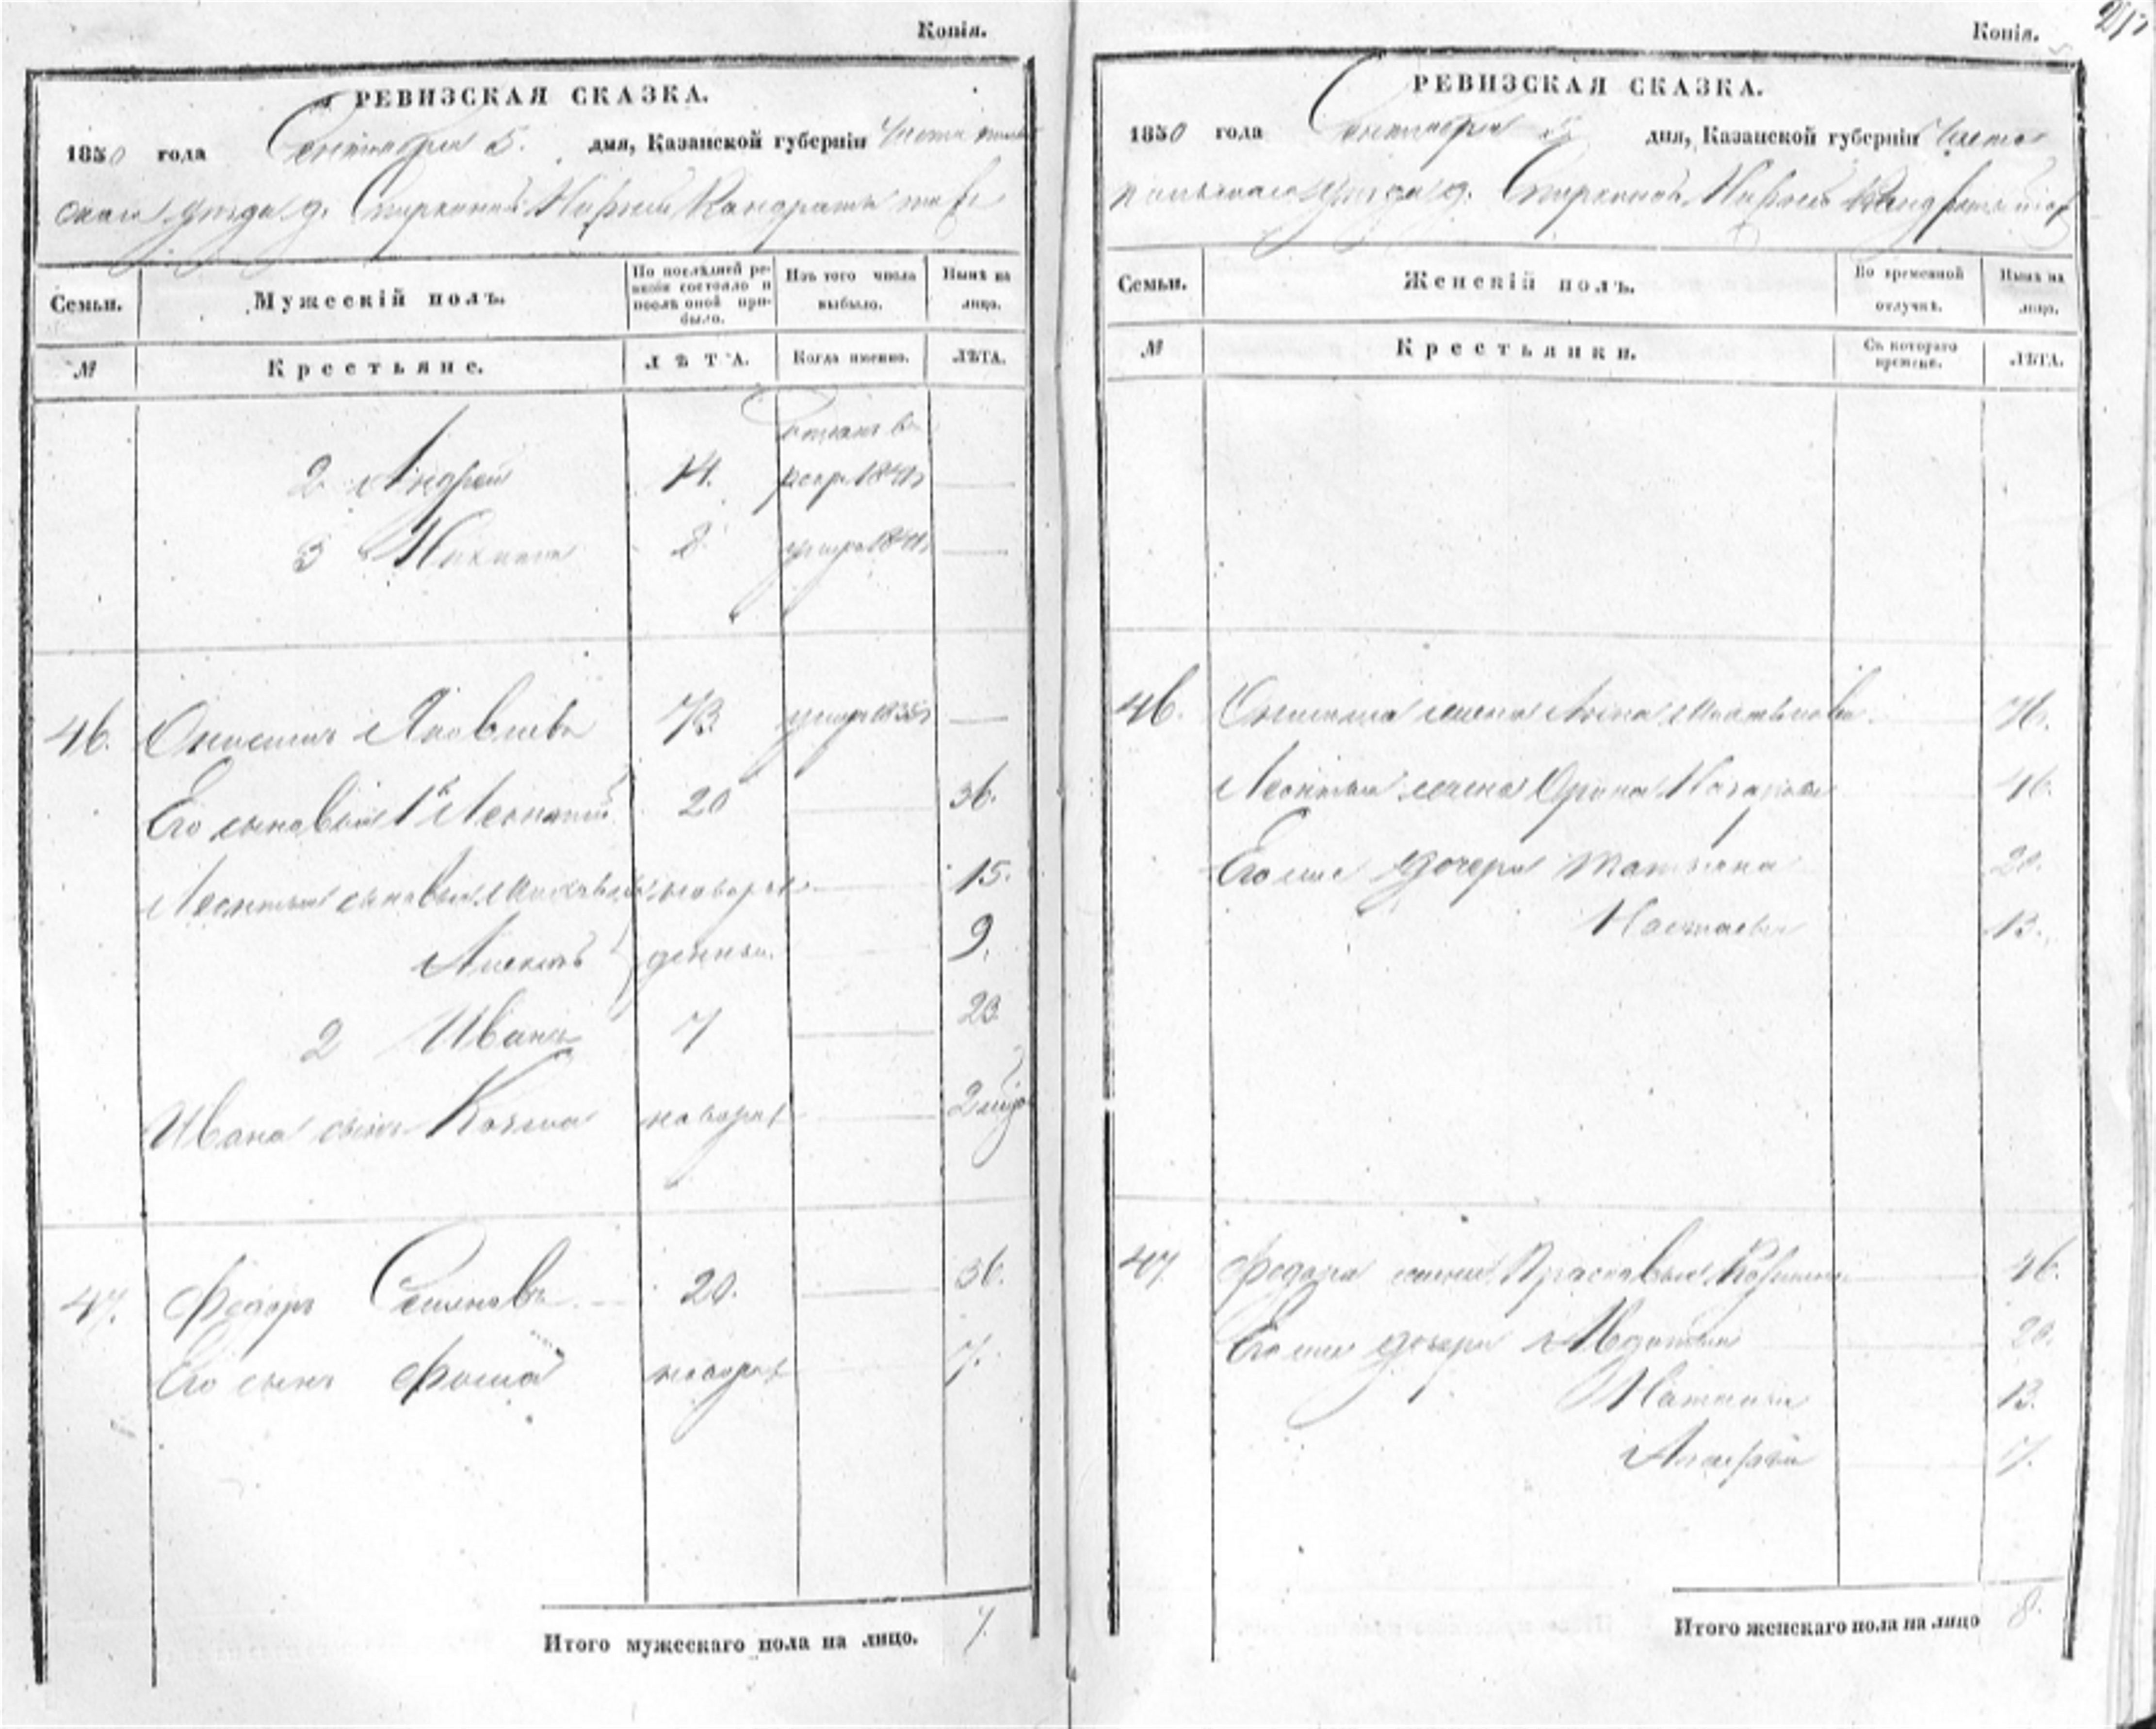 Копія.
РЕВИЗСКАЯ СКАЗКА.
1850 года Сентября 5. дня, Казанской губерніи Чистополь
скаго уѣзда д.
Семьи.
Мужескій полъ.
По послѣдней ре-
визіи состояло и
послѣ оной при-
было.
Изъ того числа
выбыло.
Нынѣ на
лицо.
№
Крестьяне.
ЛѢТА.
Когда именно.
ЛѢТА.
2 Андрей 14.
3 Никита 8
46. Онисимъ Яковлевъ 73. умеръ 1835
Его сыновья 1й Леонтій 20 36.
Леонтья сыновья новорож 15.
Алексѣй денные. 9.
2 Иванъ 7 23
Ивана сынъ Козма новорож 2 мѣс
47. Федоръ Семеновъ 20. 36.
Его сынъ Фома новорож 7.
Итого мужескаго пола на лицо. 7.
Копія.
РЕВИЗСКАЯ СКАЗКА.
1850 года Сентября 5 дня, Казанской губерніи Чисто
польскаго уѣзда д.
Семьи.
Женскій полъ.
Во временной
отлучкѣ.
Нынѣ на
лицо.
№
Крестьянки.
Съ котораго
времени.
ЛѢТА.
46. Онисима жена Анна 76.
Леонтья жена Орина Назарова 46.
Его же дочери Татьяна 20.
Настасья 13.
47. Федора жена Прасковья 46.
Его же дочери Авдотья 20.
Матрена 13.
7.
Итого женскаго пола на лицо 8.